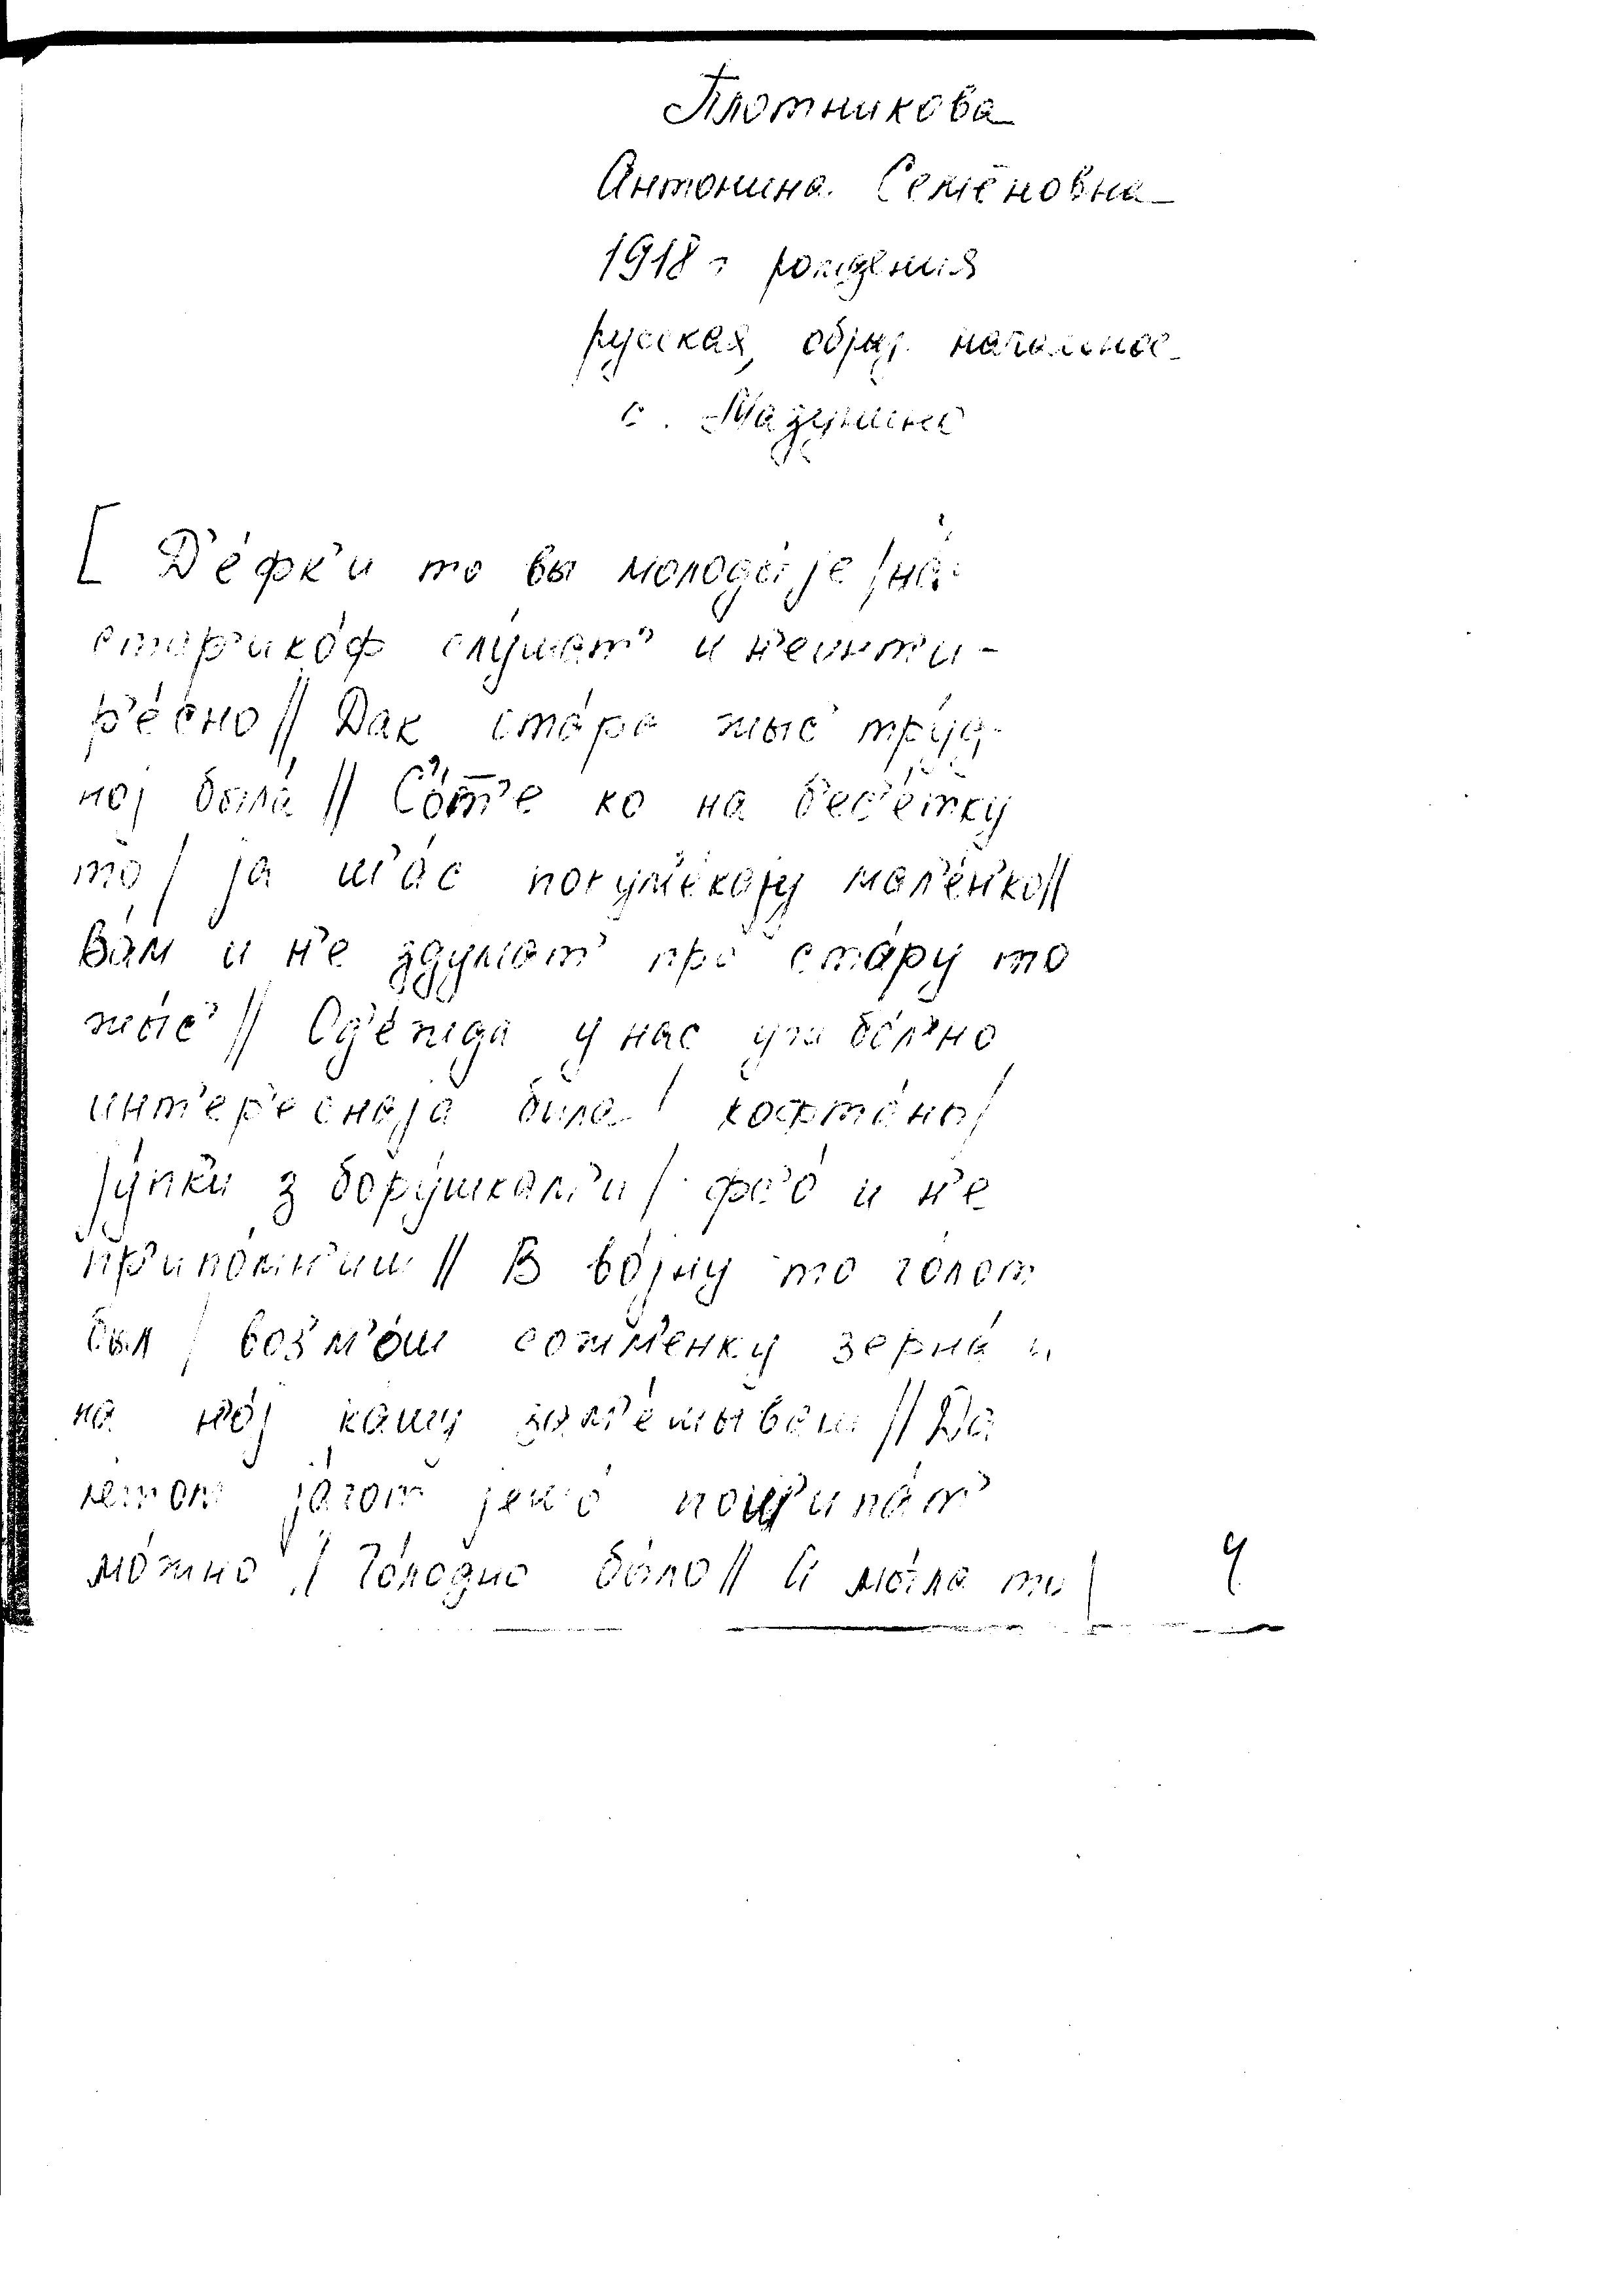 Плотникова
Антонина Семёновна
1918 г рождения
русская, образ. начальное
с. Мазунино
[ Д'е́фк'и то вы молоды́је / на́с
стар'ико́ф слу́шат' и н'еинт'и-
р'е́сно // Дак ста́ра жыс' тру́д-
ној была́ // С'о́т'е ко на б'ес'е́тку
то / ја ш'а́с покум'е́кају мал'е́н'ко //
Ва́м и н'е здумат' про ста́ру то
жы́с' // Од'е́жда у нас уш бо́л'но
инт'ер'есн​аја была / кафта́ны /
јупки з бору́шкам'и / фс'о́ и н'е
пр'ипо́мн'иш // В во́јну то го́лот
был / воз'м'о́ш сотм'енку зерна́ и
на н'о́ј кашу зам'е́шываш // Да
летом ја́гот јешо́ пощ'ипа́т'
мо́жно // Го́лодно бы́ло // А мо́гла то /
4